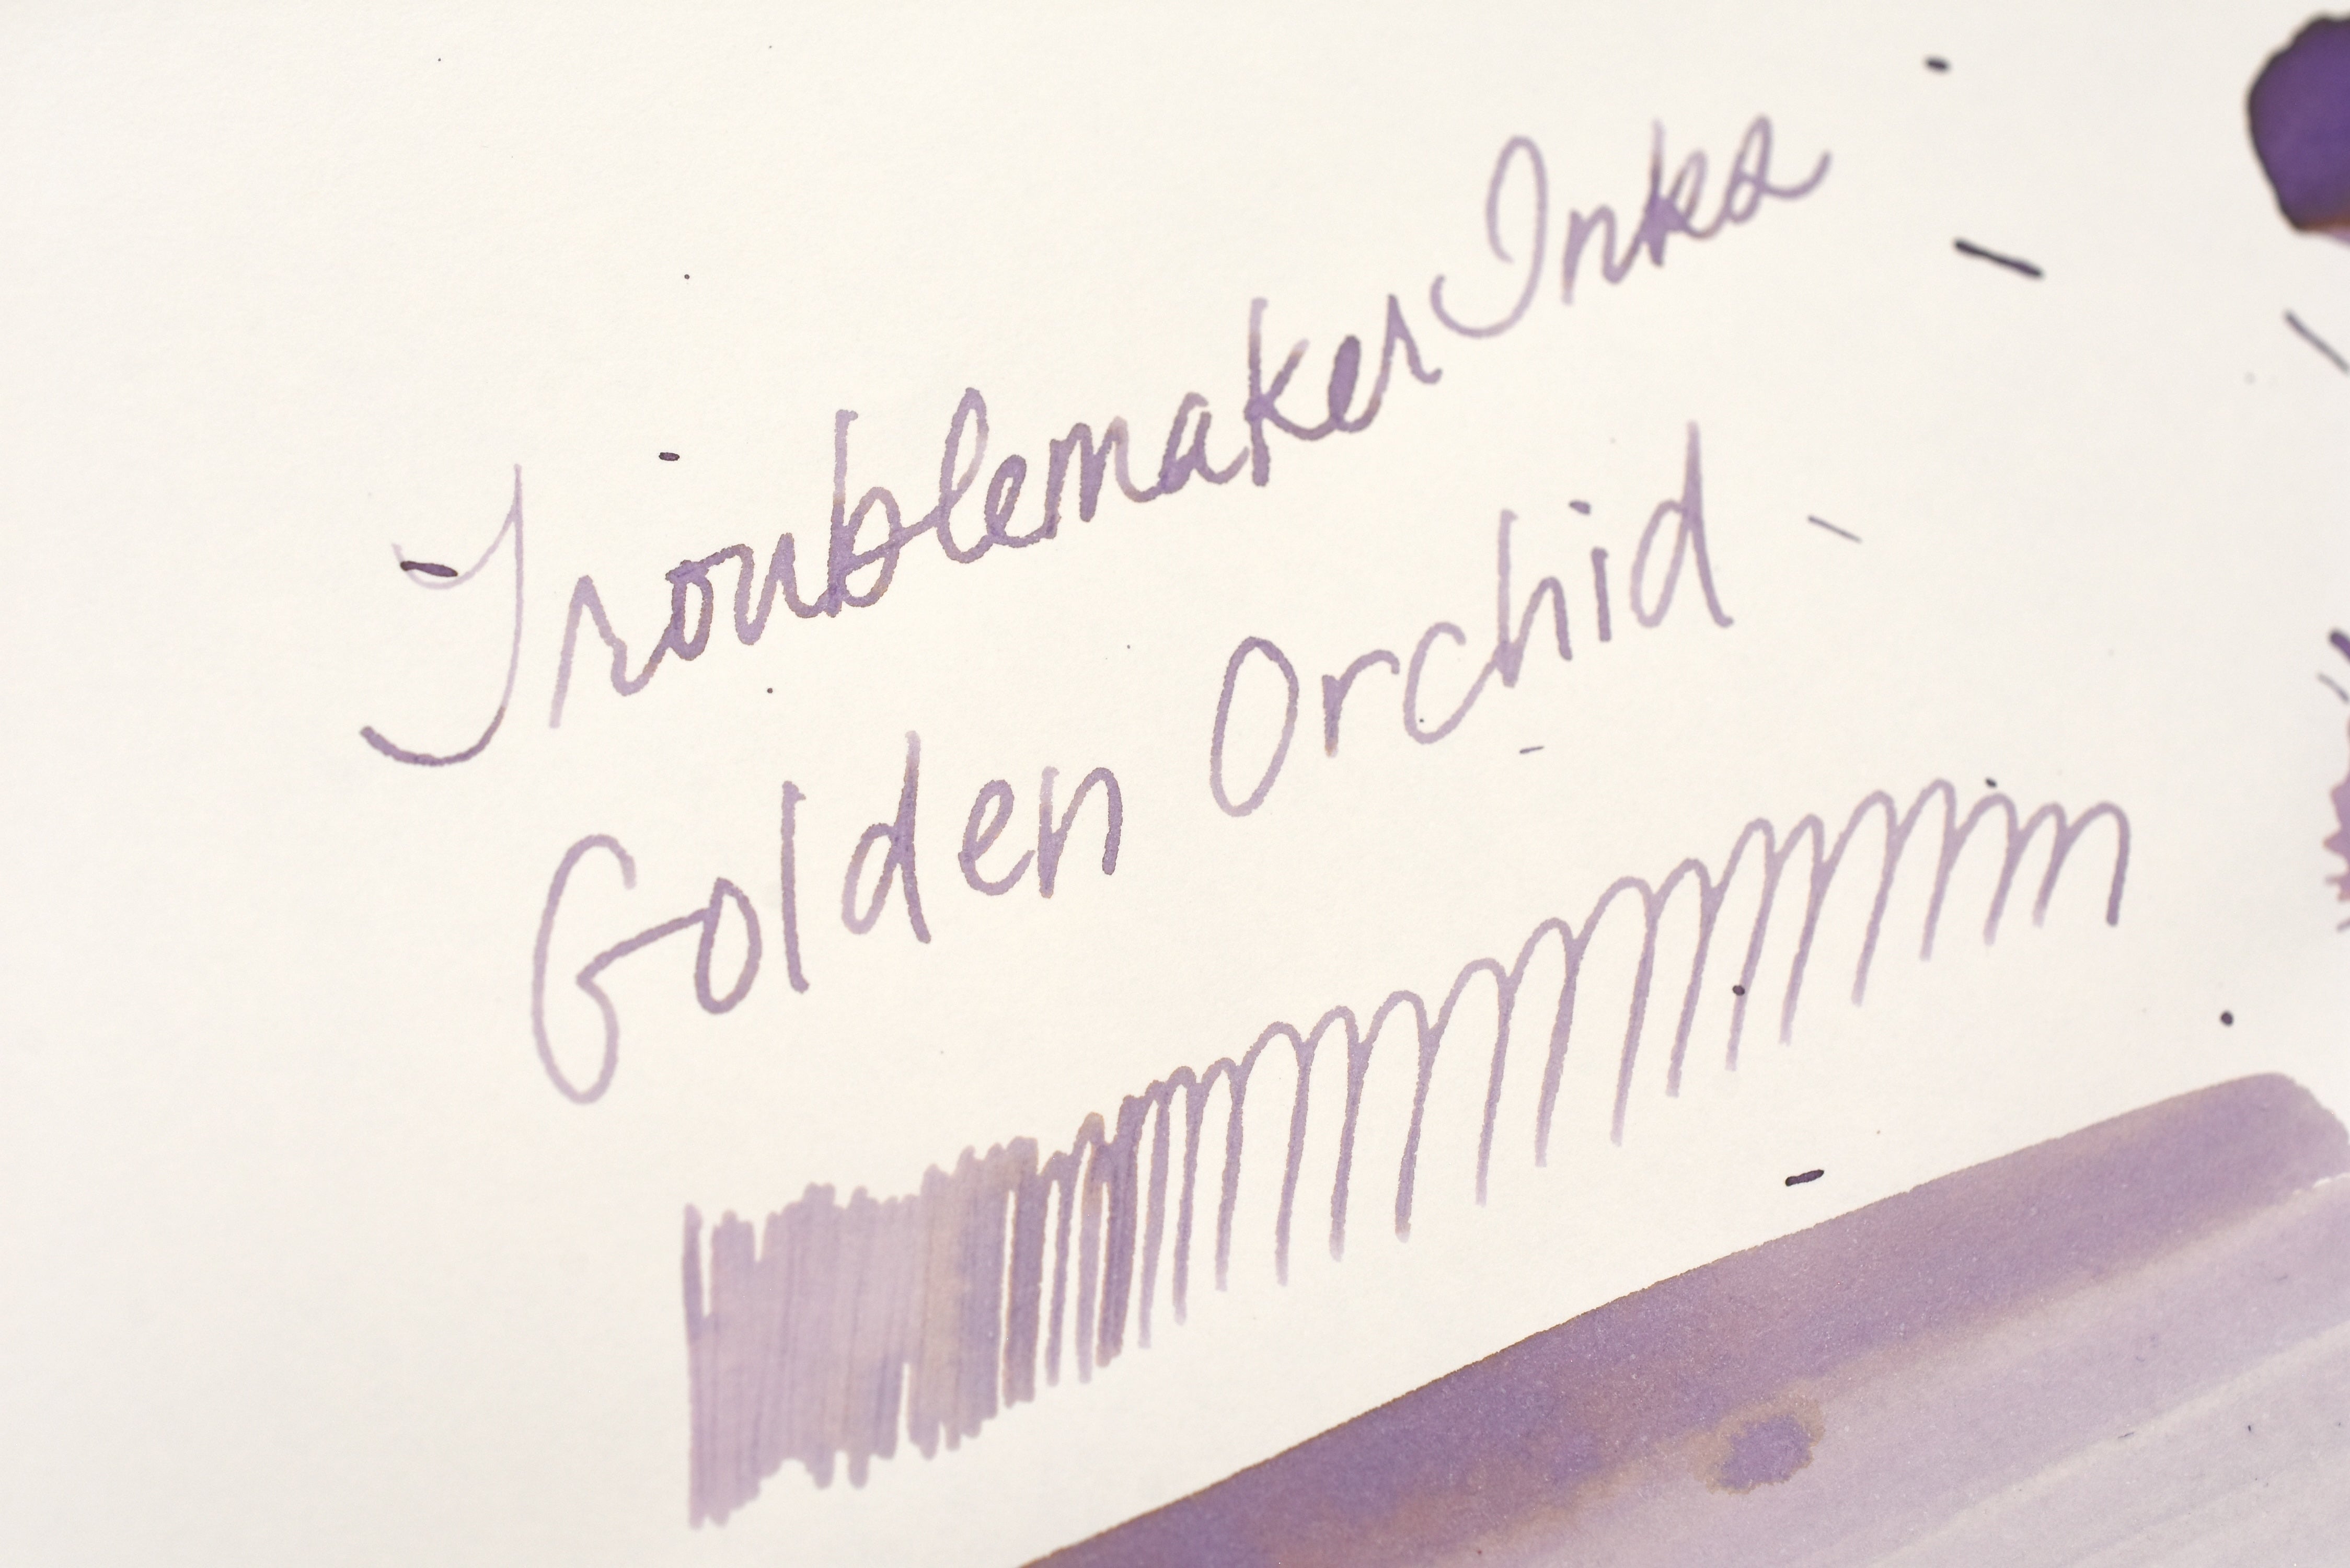 Troublemaker Inks
Golden Orchid